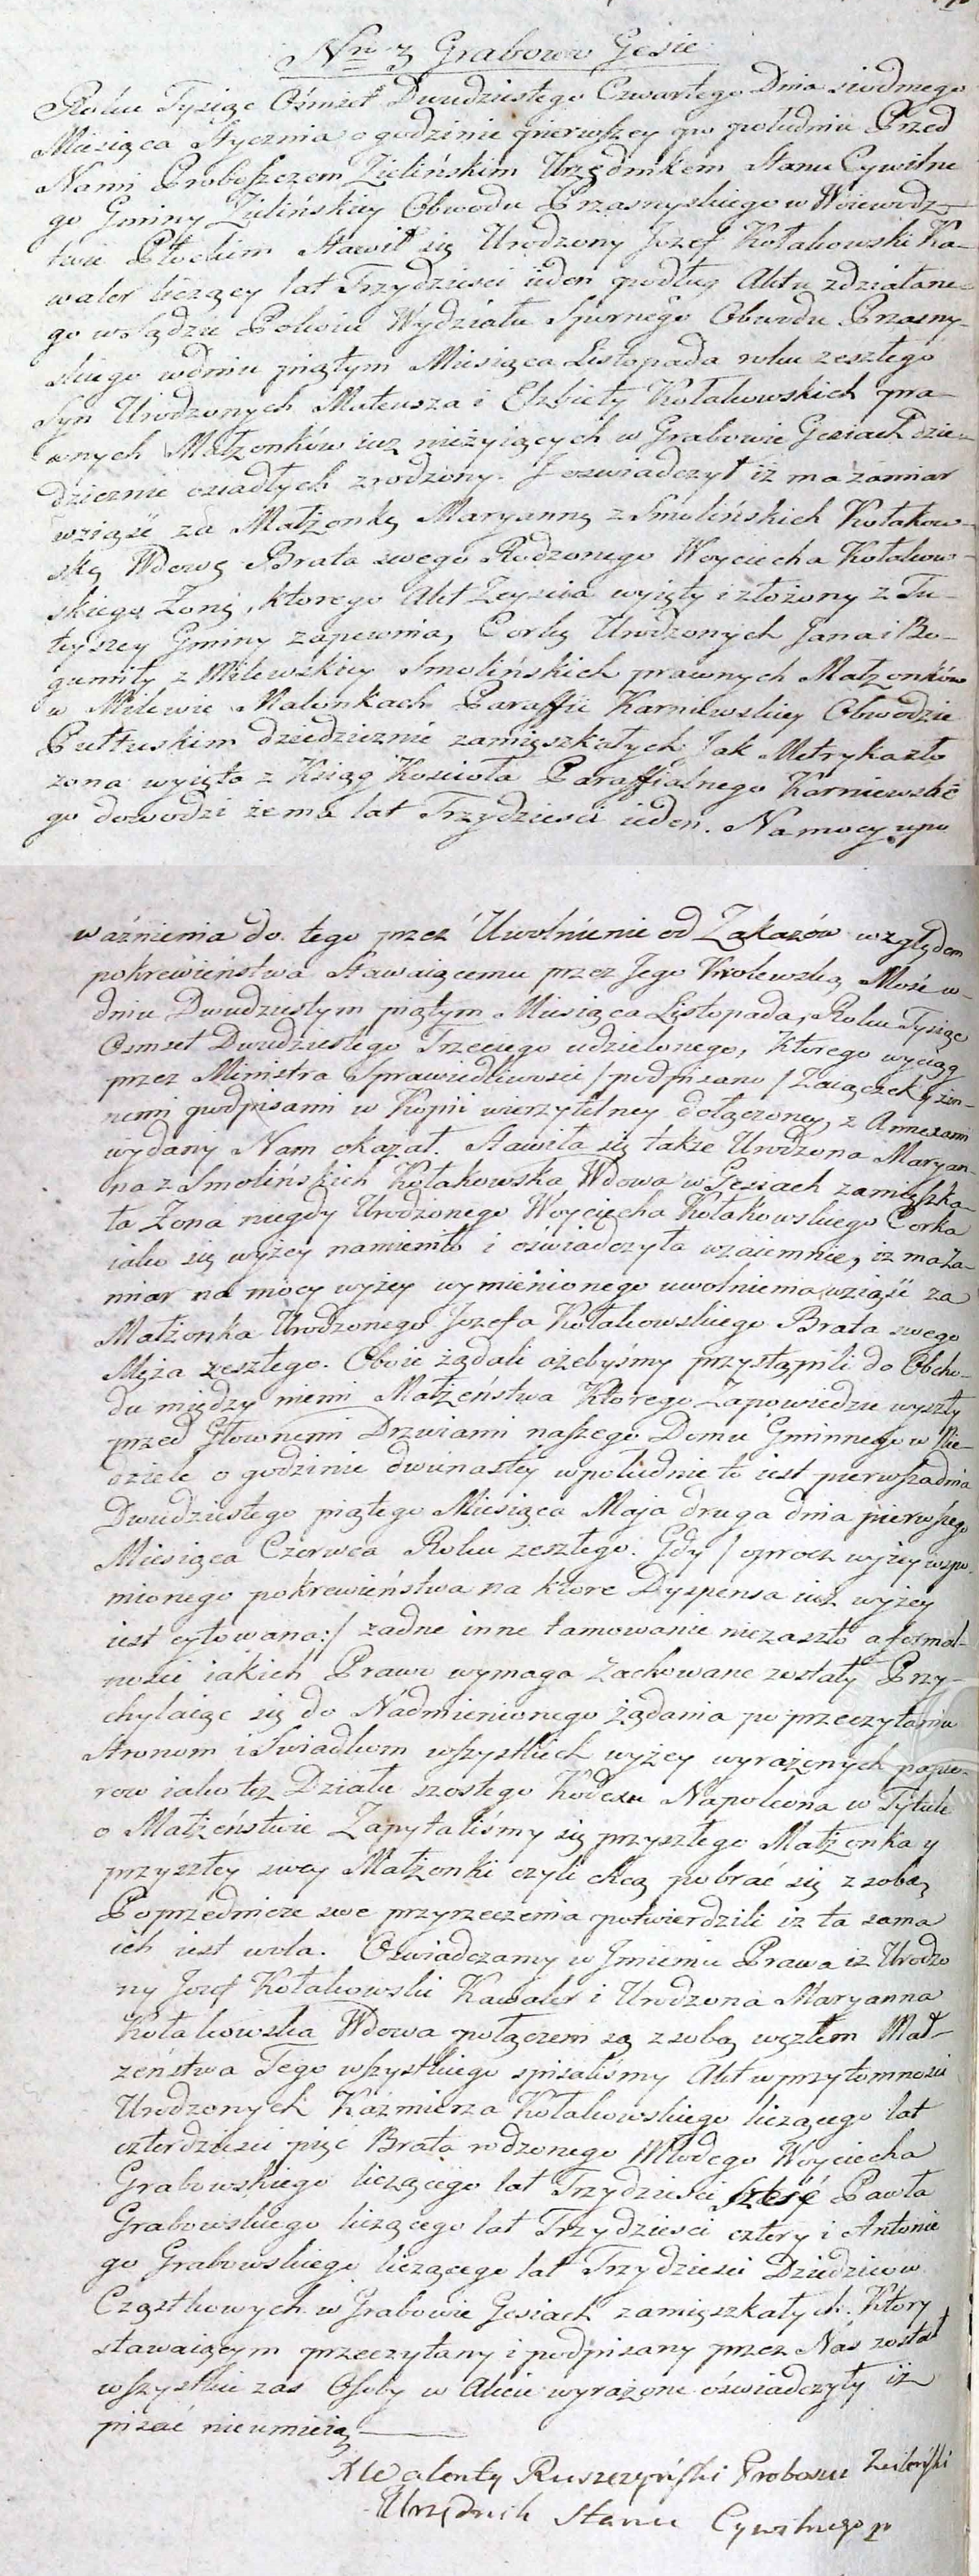 Nro 3 Grabowo Gęsie
Roku Tysiąc Ośmset Dwudziestego Czwartego Dnia siodmego
Miesiąca Stycznia o godzinie pierwszey po południu Przed
Nami Proboszczem Zielińskim Urzędnikem Stanu Cywilne
go Gminy Zielińskiey Obwodu Przasnyskiego w Woiewodz-
twie Płockim Stawił się Urodzony Jozef Kołakowski Ka-
waler liczący lat Trzydzieści ieden podług Aktu zdziałane-
go w Sądzie Pokoiu Wydziału Spornego Obwodu Przasny-
skiego w dniu piątym Miesiąca Listopada roku zeszłego
Syn Urodzonych Mateusza i Elżbiety Kołakowskich pra-
wnych Małżonków iuz nieżyiących w Grabowie Gęsiach dzie-
dzicznie osiadłych zrodzony. J oswiadczył iż ma zamiar
wziąść za Małżonkę Maryannę z Smolińskich Kołakow-
ską Wdowę Brata swego Rodzonego Woyciecha Kołakow-
skiego Żonę, ktorego Akt Zeyscia wyięty i złożony z Tu-
teyszey Gminy zapewnia, Corkę Urodzonych Jana i Bo-
gumiły z Milewskiey Smolińskich prawnych Małzonków
w Milewie Malonkach Paraffii Karniewskiey Obwodzie
Pułtuskim dziedzicznie zamięszkałych Jak Metryka zło
żona wyięta z Ksiąg Kościoła Paraffialnego Karniewskie
go dowodzi że ma lat Trzydziesci ieden. Na mocy upo
ważnienia do tego przez Uwolnienie od Zakazów względem
pokrewieństwa Stawaiącemu przez Jego Krolewską Mość w
dniu Dwudziestym piątym Miesiąca Listopada, Roku Tysiąc
Osmset Dwudziestego Trzeciego udzielonego, Ktorego wyciąg
przez Ministra Sprawiedliwosci /podpisano/ Zaiączek y in-
nemi podpisami w Kopii wierzytelney dołączoney, z Annexami
wydany Nam okazał. Stawiła się także Urodzona Maryan-
na z Smolińskich Kołakowska Wdowa w Gęsiach zamięszka-
ła Żona niegdy Urodzonego Woyciecha Kołakowskiego Corka
iako się wyżey namieniło i oświadczyła wzaiemnie, iż ma Za-
miar na mocy wyżey wymienionego uwolnienia wziąść za
Małżonka Urodzonego Jozefa Kołakowskiego Brata swego
Męża zeszłego. Oboie żądali ażebyśmy przystąpili do Obcho-
du między niemi Małżeństwa Którego Zapowiedzie wyszły
przed Głownemi Drzwiami naszego Domu Gminnego w Nie-
dziele o godzinie dwunastey w południe to iest pierwsza dnia
Dwudziestego piątego Miesiąca Maja druga dnia pierwszego
Miesiąca Czerwca Roku zeszłego. Gdy / oprocz wyżey wspo-
mionego pokrewieństwa na ktore Dyspensa iuż wyżey
iest cytowana:/ żadne inne tamowanie niezaszło a formal-
ności iakich Prawo wymaga zachowane zostały Przy-
chylaiąc się do Nadmienionego żądania po przeczytaniu
Stronom i Swiadkom wszystkich wyżey wyrażonych papie-
row iako też Działu szostego Kodexu Napoleona w Tytule
o Małżeństwie Zapytaliśmy się przyszłego Małżonka y
przyszłey swey Małżonki czyli chcą pobrać się z sobą,
Poprzednicze swe przyrzeczenia potwierdzili iż ta sama
ich iest wola. Oswiadczamy w Jmieniu Prawa iż Urodzo
ny Jozef Kołakowski Kawaler i Urodzona Maryanna
Kołakowska Wdowa połączeni są z sobą węzłem Mał-
żeństwa Tego wszystkiego spisaliśmy Akt w przytomności
Urodzonych Kaźmierza Kołakowskiego liczącego lat
czterdziesci pięc Brata rodzonego Młodego Woyciecha
Grabowskiego liczącego lat Trzydziesci szesć Pawła
Grabowskiego liczącego lat Trzydziesci cztery i Antonie
go Grabowskiego liczącego lat Trzydziesci Dziedzicow
Cząstkowych w Grabowie Gęsiach zamięszkałych. Ktory
stawaiącym przeczytany i podpisany przez Nas został
wszystkie zas Osoby w Akcie wyrażone oświadczyły iż
pisać nieumieią
X Walenty Ruszczyński Proboszcz Zieliński
Urzędnik Stanu Cywilnego